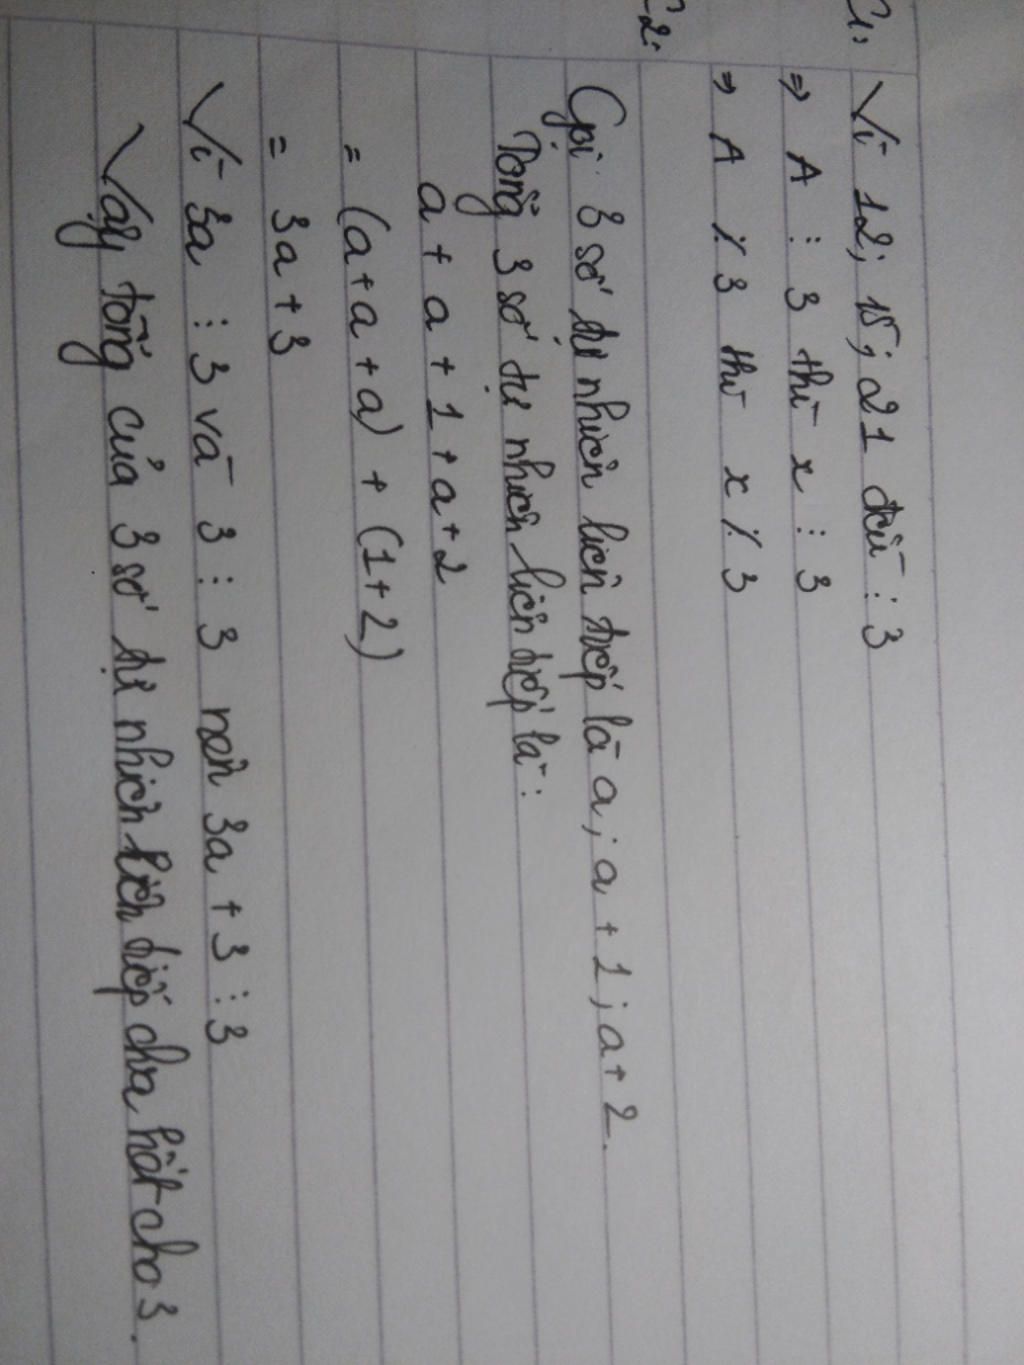 C1: Vì 12; 15; 21 đều ⋮ 3
⇒ A ⋮ 3 thì x ⋮ 3
⇒ A ⋮̸ 3 thì x ⋮̸ 3
C2:
Gọi 3 số tự nhiên liên tiếp là a; a + 1; a + 2.
Tổng 3 số tự nhiên liên tiếp là:
a + a + 1 + a + 2
= (a + a + a) + (1 + 2)
= 3a + 3
Vì 3a ⋮ 3 và 3 ⋮ 3 nên 3a + 3 ⋮ 3
Vậy tổng của 3 số tự nhiên liên tiếp chia hết cho 3.